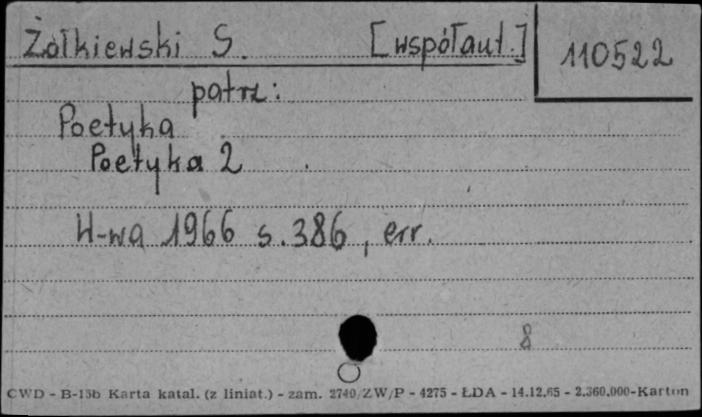 Żółkiewski S. [współaut.] 110522
patrz:
Poetyka
Poetyka 2
W-wa 1966 s. 386, err.
8
CWD - B-15b Karta katal. (z liniat.) - zam. 2740/ZW/P - 4275 - ŁDA - 14.12.65 - 2.360.000-Karton